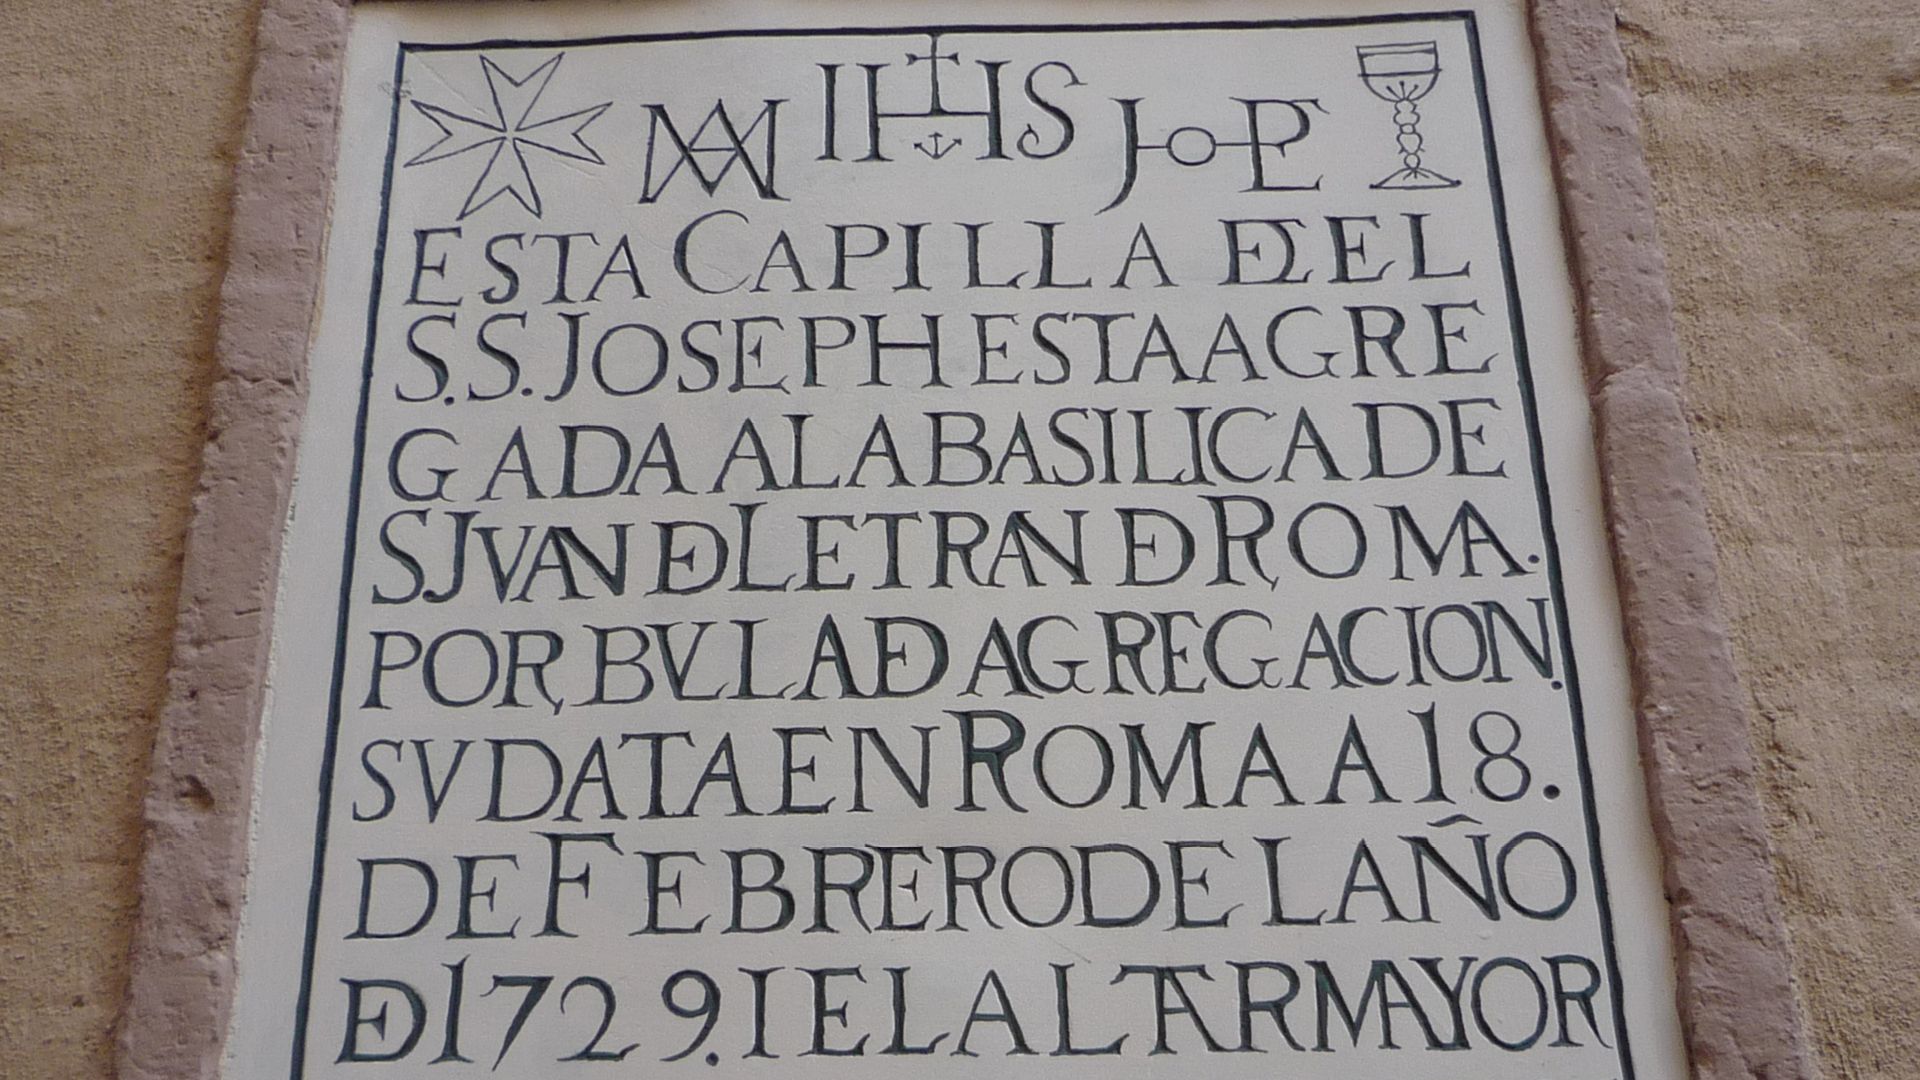 MA IHS JOPE
ESTA CAPILLA DE EL
S.S. JOSEPH ESTA AGRE
GADA A LA BASILICA DE
S. JVAN DE LETRAN DE ROMA.
POR BVLA DE AGREGACION.
SV DATA EN ROMA A 18.
DE FEBRERO DEL AÑO
DE 1729. I EL ALTAR MAYOR